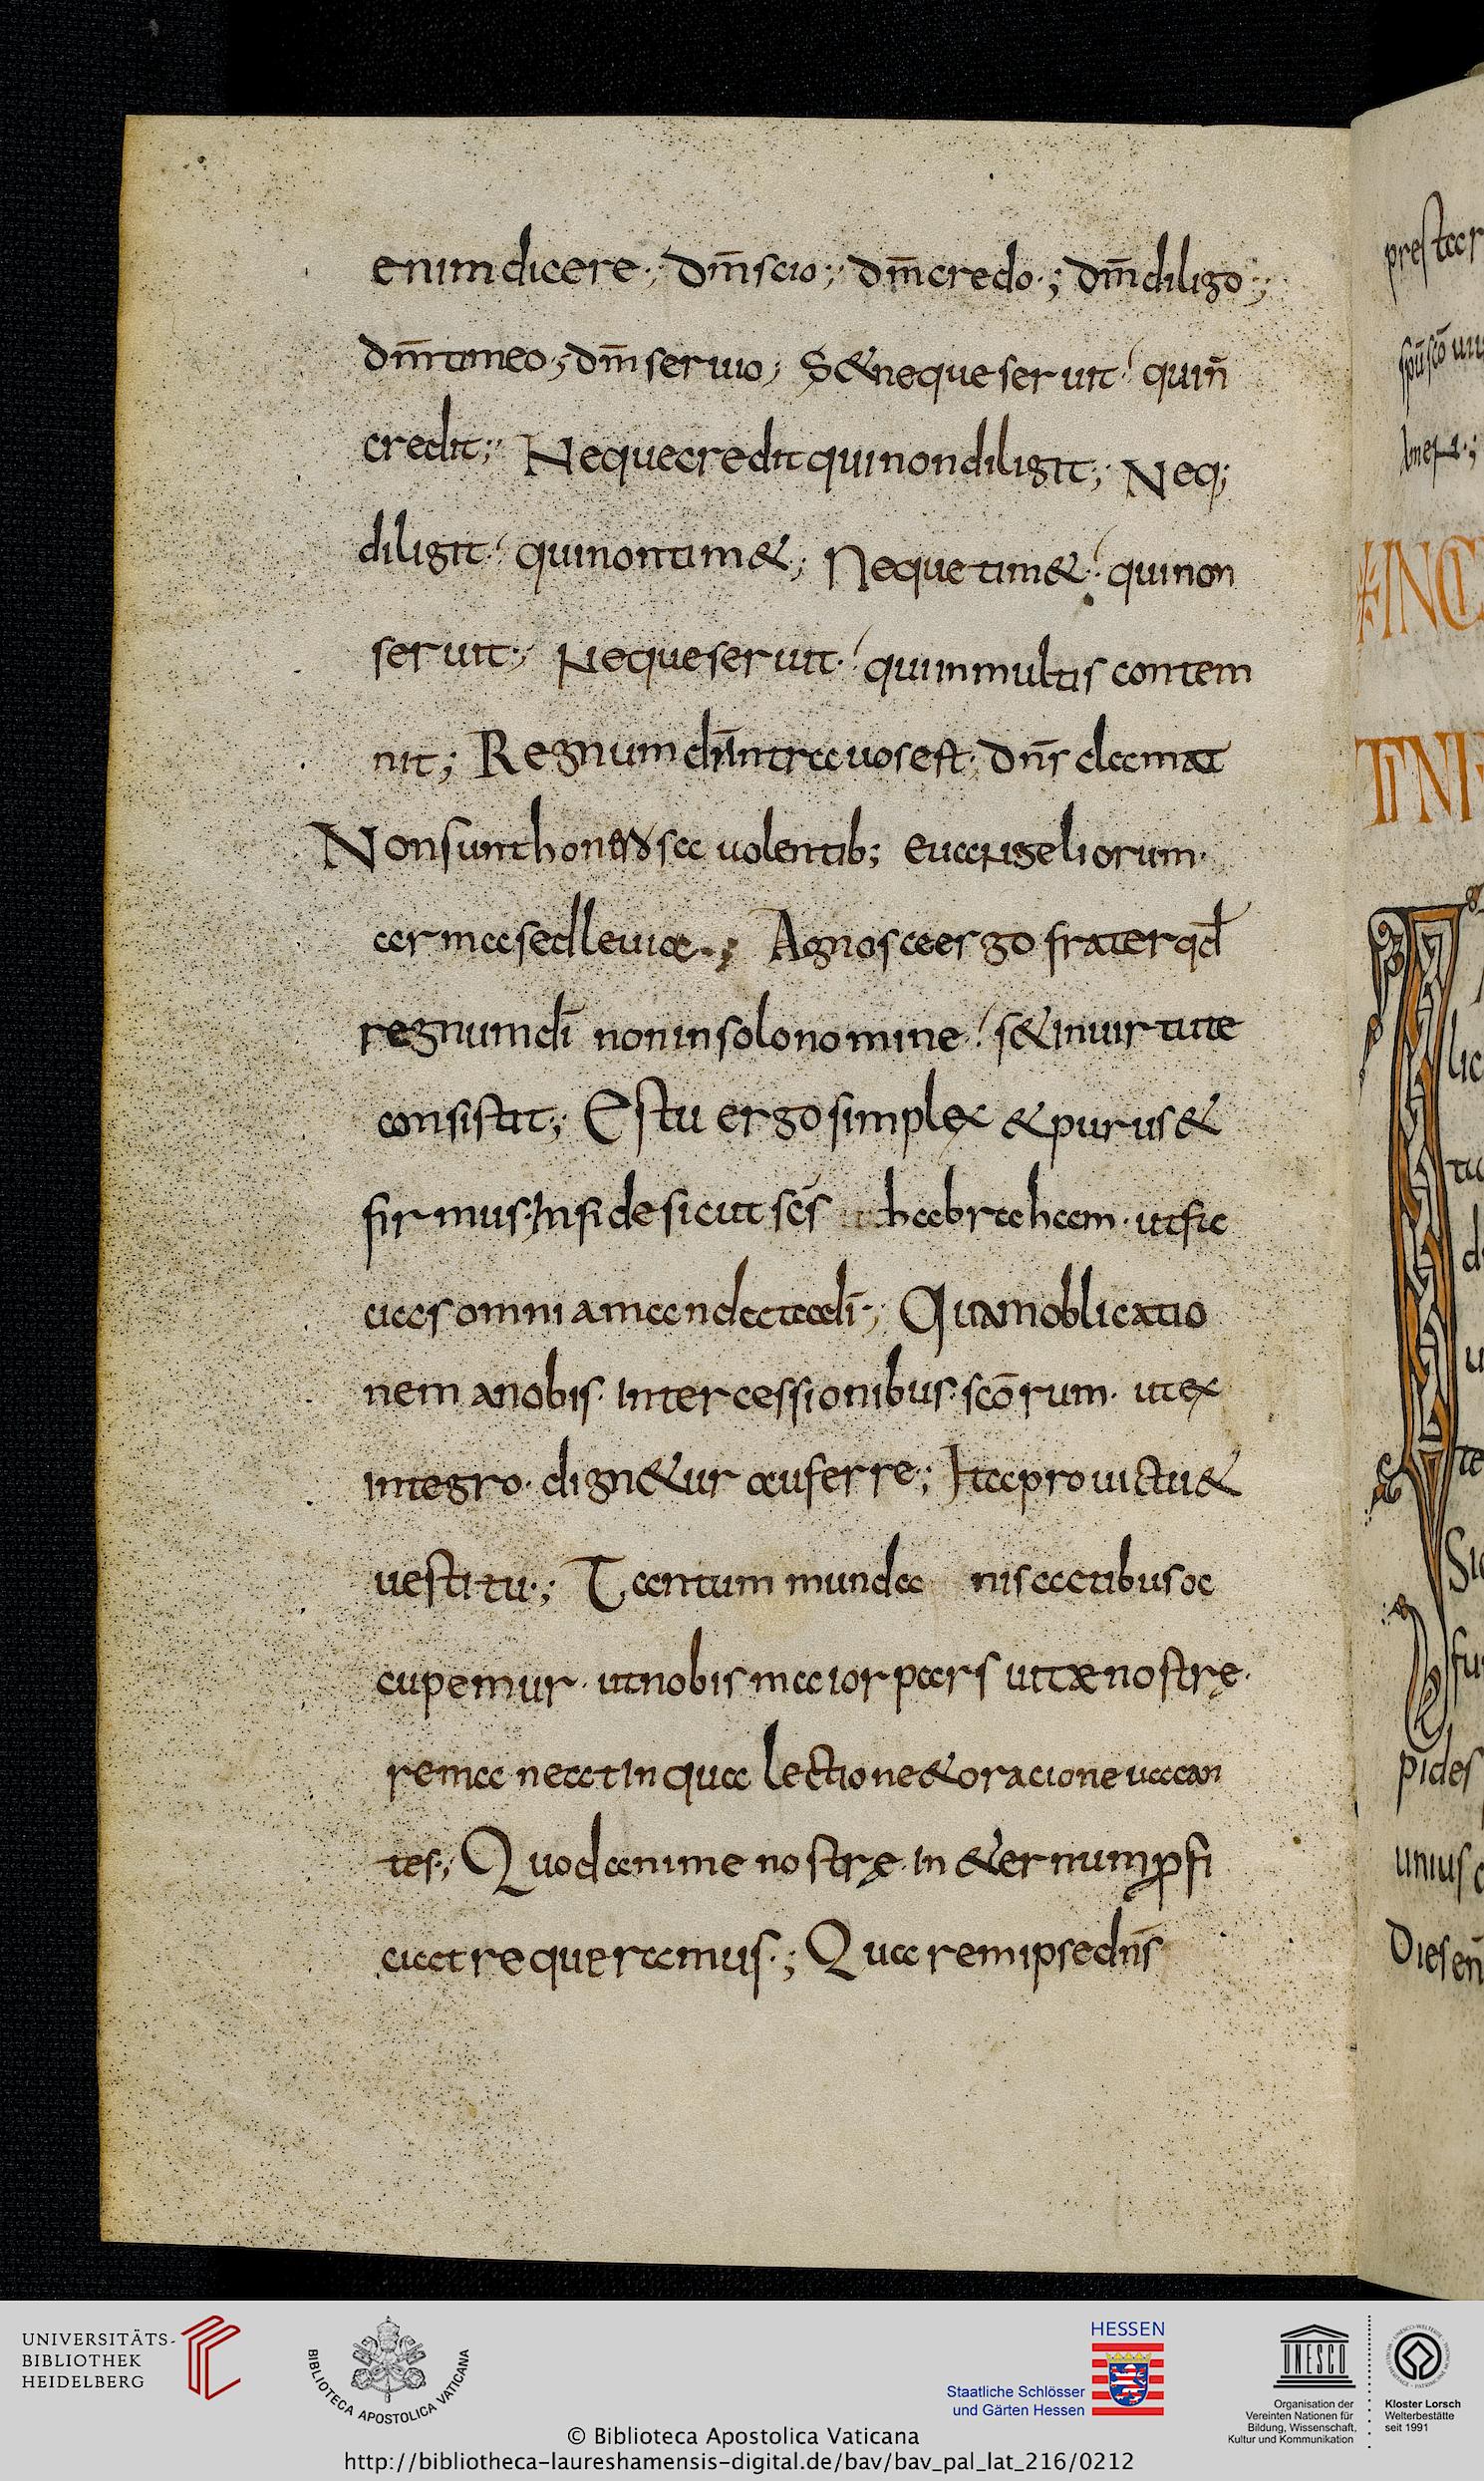 enim dicere·; dm̄ scio·; dm̄ credo·; dm̄ diligo·;
dm̄ timeo·; dm̄ seruio; S& neque seruit· quin̄
credit·; Neque credit qui non diligit·; Neq;
diligit· qui non tim&; Neque tim&· qui non
seruit·; Neque seruit· qui in multis contem
nit; Regnum dī intra uos est· dn̄s clamat
Non sunt honerosa uolentib; euangeliorum·
arma sed leuia·; Agnosce ergo frater qd̄
regnum dī non in solo nomine· s& in uirtute
consistit·; Estu ergo simplex & purus &
firmus· in fide sicut sc̄s habraham· ut fic
cias omnia mandata dī·; Quam oblicatio
nem a nobis· intercessionibus· scōrum· ut ex
integro· dign&ur auferre·; Ita pro uictu &
uestitu·; Tantum munda nis actibus oc
cupemur· ut nobis maior pars uitæ nostrę·
remaneat in qua lectione & oracione uacan
tes·; Quod anime nostrę· in &ernum ꝓfi
ciat requeramus·; Quarem ipse dn̄s
prestar
sp̄u scō uiu
Amen·;
INCI
lic
tu
d
u
te
Sic
fu
pides
unius c
Dies en̄
UNIVERSITÄTS-
BIBLIOTHEK
HEIDELBERG
BIBLIOTECA APOSTOLICA VATICANA
HESSEN
Staatliche Schlösser
und Gärten Hessen
UNESCO
Organisation der
Vereinten Nationen für
Bildung, Wissenschaft,
Kultur und Kommunikation
Kloster Lorsch
Welterbestätte
seit 1991
© Biblioteca Apostolica Vaticana
http://bibliotheca-laureshamensis-digital.de/bav/bav_pal_lat_216/0212